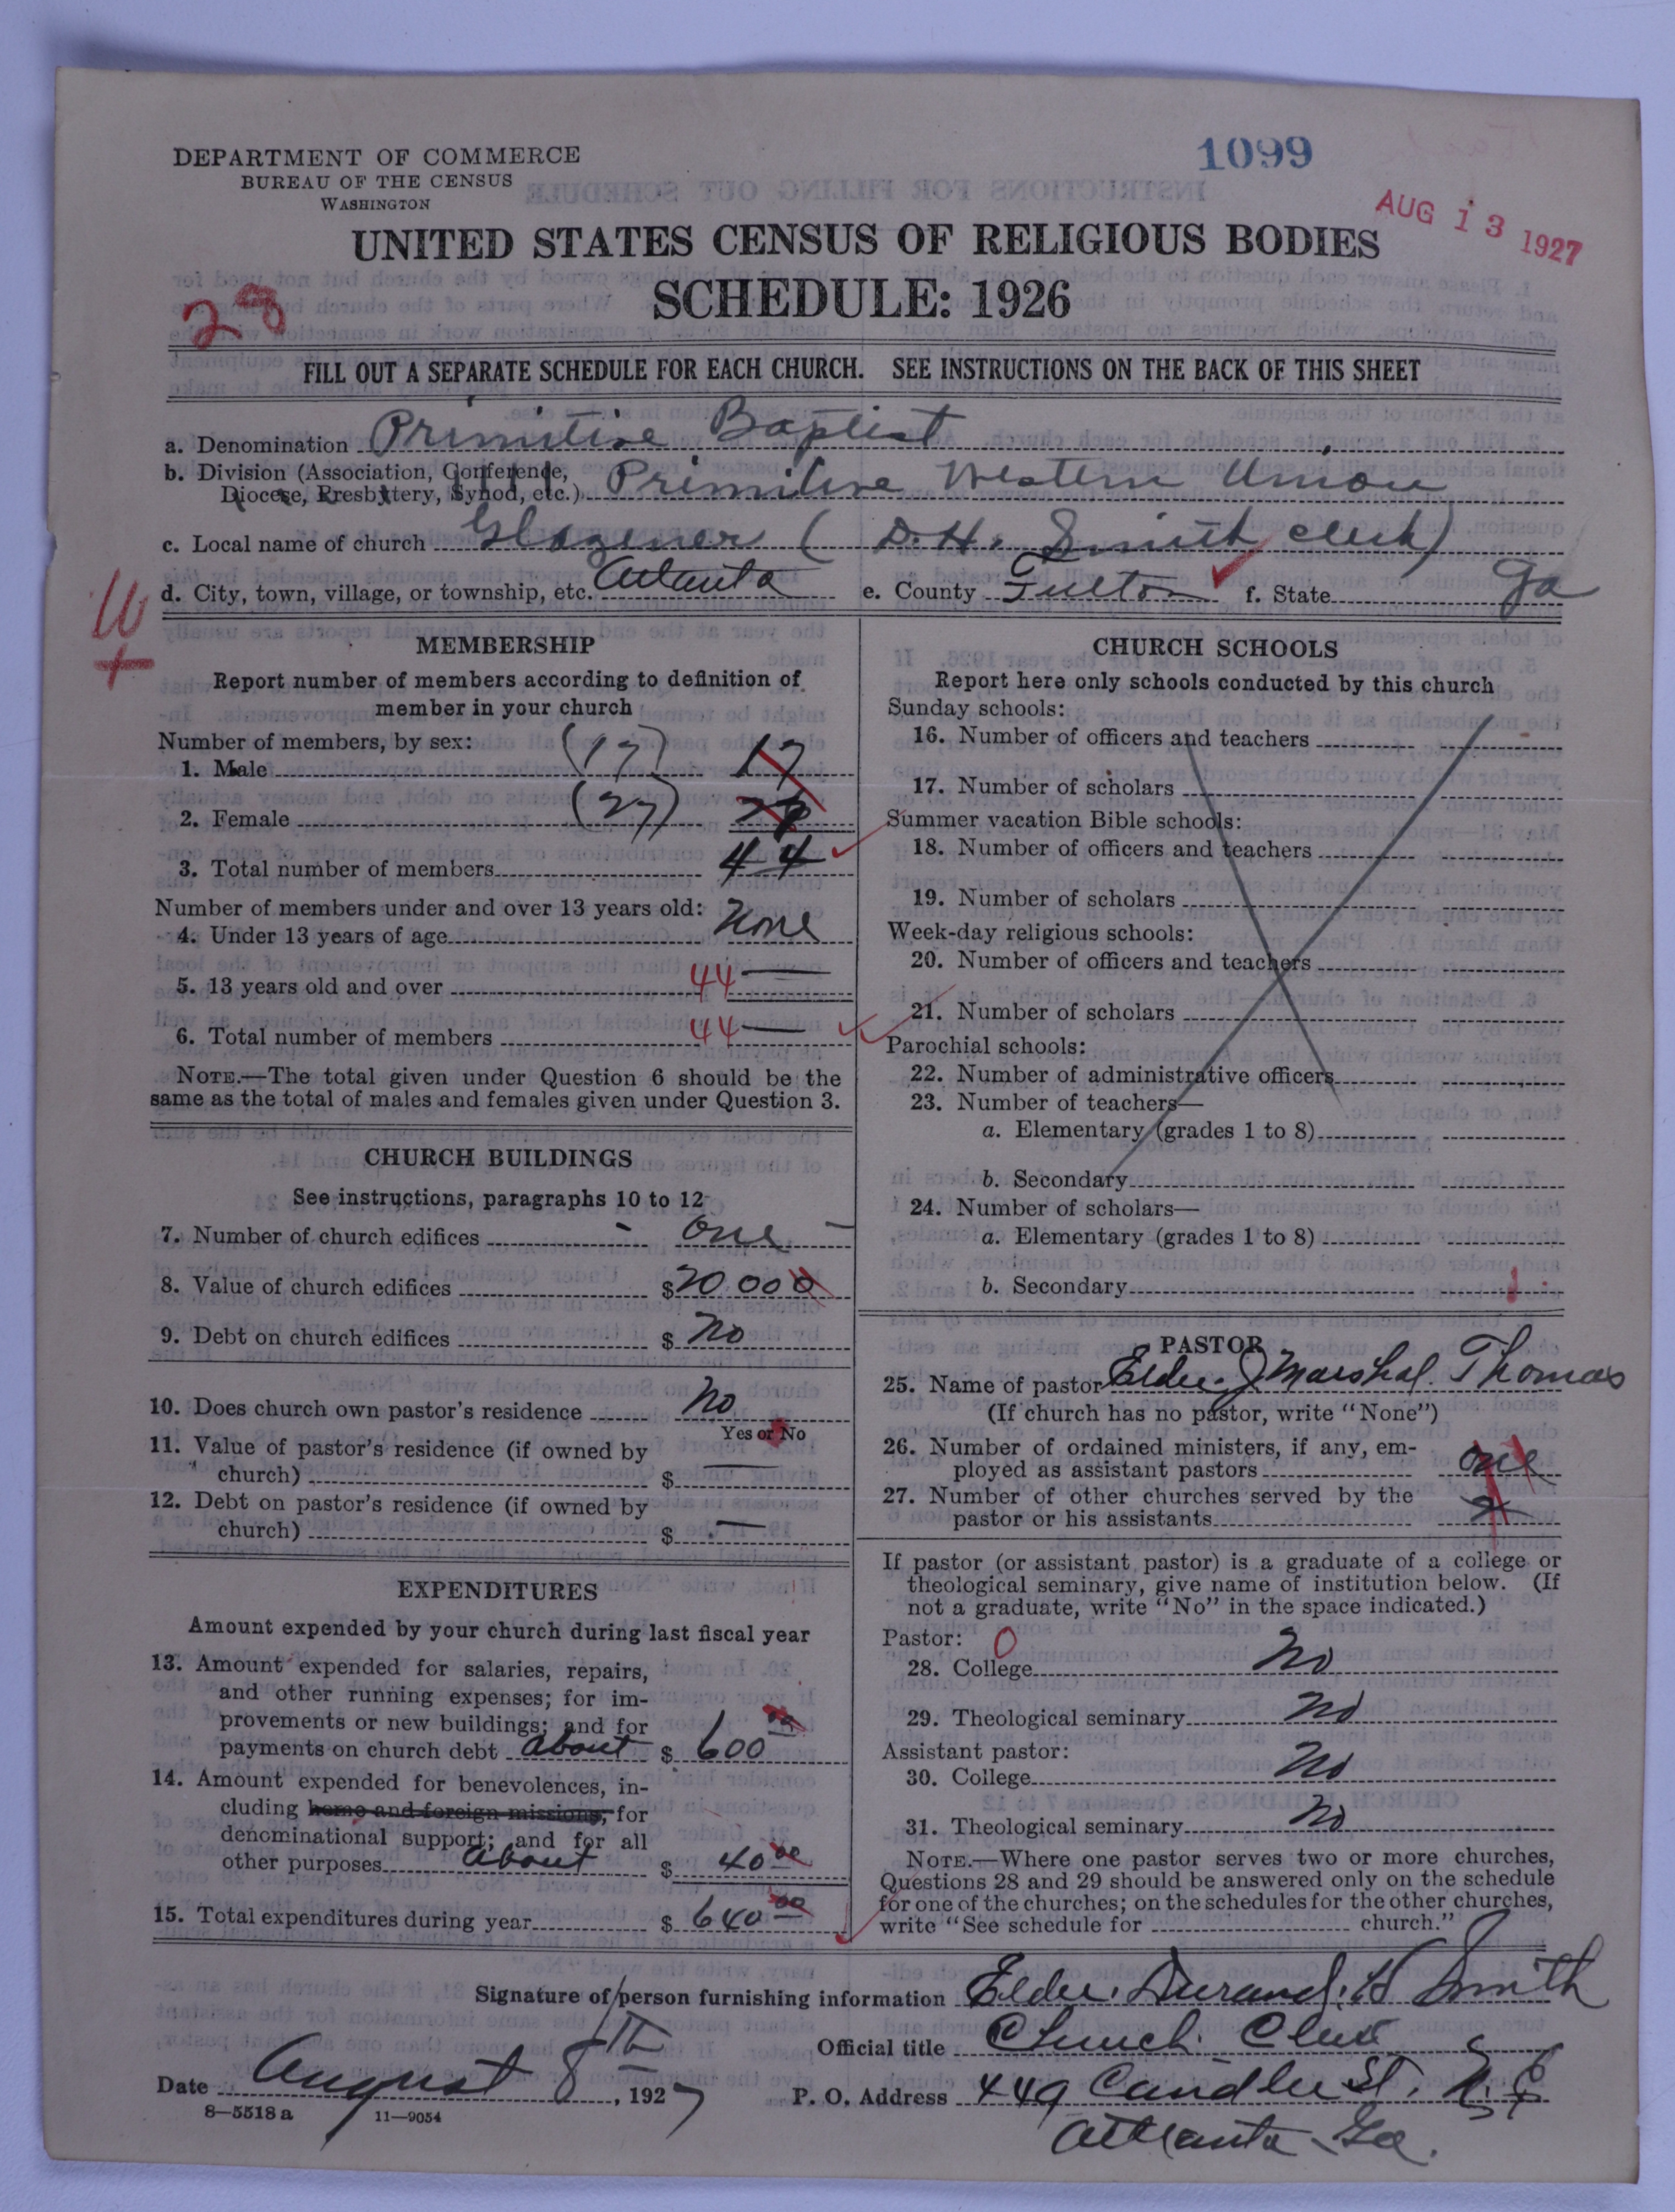 1099
DEPARTMENT OF COMMERCE
BUREAU OF THE CENSUS
WASHINGTON
AUG 13 1927
UNITED STATES CENSUS OF RELIGIOUS BODIES
SCHEDULE: 1926
28
FILL OUT A SEPARATE SCHEDULE FOR EACH CHURCH. SEE INSTRUCTIONS ON THE BACK OF THIS SHEET
a. Denomination Primitive Baptist
b. Division (Association, Conference,
Diocese, Presbytery, Synod, etc.) Primitive Western Union
c. Local name of church Glazener (D. H. Smith clerk)
d. City, town, village, or township, etc. Atlanta e. County Fulton f. State Ga
MEMBERSHIP
Report number of members according to definition of
member in your church
Number of members, by sex:
1. Male (17) 17
2. Female (27)
3. Total number of members 44
Number of members under and over 13 years old:
4. Under 13 years of age None
5. 13 years old and over 44 —
6. Total number of members 44 —
NOTE.—The total given under Question 6 should be the
same as the total of males and females given under Question 3.
CHURCH BUILDINGS
See instructions, paragraphs 10 to 12
7. Number of church edifices - one -
8. Value of church edifices $20 000
9. Debt on church edifices $ no
10. Does church own pastor's residence No
Yes or No
11. Value of pastor's residence (if owned by
church) $ —
12. Debt on pastor's residence (if owned by
church) $ —
EXPENDITURES
Amount expended by your church during last fiscal year
13. Amount expended for salaries, repairs,
and other running expenses; for im-
provements or new buildings; and for
payments on church debt about $ 600 00
14. Amount expended for benevolences, in-
cluding home and foreign missions, for
denominational support; and for all
other purposes about $ 40 00
15. Total expenditures during year $ 640 00
CHURCH SCHOOLS
Report here only schools conducted by this church
Sunday schools:
16. Number of officers and teachers
17. Number of scholars
Summer vacation Bible schools:
18. Number of officers and teachers
19. Number of scholars
Week-day religious schools:
20. Number of officers and teachers
21. Number of scholars
Parochial schools:
22. Number of administrative officers
23. Number of teachers—
a. Elementary (grades 1 to 8)
b. Secondary
24. Number of scholars—
a. Elementary (grades 1 to 8)
b. Secondary
PASTOR
25. Name of pastor Elder J Marshal. Thomas
(If church has no pastor, write "None")
26. Number of ordained ministers, if any, em-
ployed as assistant pastors one
27. Number of other churches served by the
pastor or his assistants
If pastor (or assistant pastor) is a graduate of a college or
theological seminary, give name of institution below. (If
not a graduate, write "No" in the space indicated.)
Pastor: 0
28. College No
29. Theological seminary No
Assistant pastor:
30. College No
31. Theological seminary No
NOTE.—Where one pastor serves two or more churches,
Questions 28 and 29 should be answered only on the schedule
for one of the churches; on the schedules for the other churches,
write "See schedule for church."
Signature of person furnishing information Elder. Durand. H Smith
Official title Church. Clerk
Date August 8th, 1927 P. O. Address 449 Candler St. N. E
8—5518 a 11—9054
Atlanta Ga.